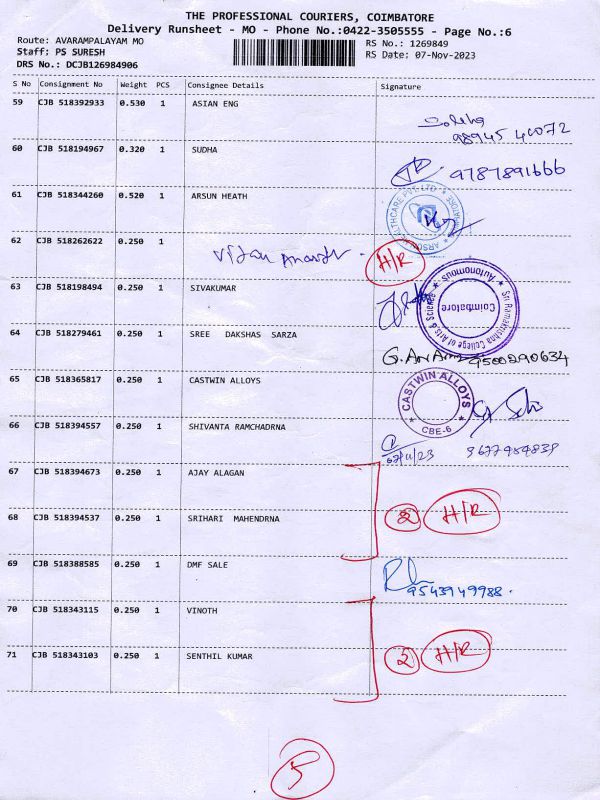 THE PROFESSIONAL COURIERS, COIMBATORE
Delivery Runsheet - MO - Phone No.:0422-3505555 - Page No.:6
Route: AVARAMPALAYAM MO
RS No.: 1269849
Staff: PS SURESH
RS Date: 07-Nov-2023
DRS No.: DCJB126984906
S No Consignment No Weight PCS Consignee Details Signature
59 CJB 518392933 0.530 1 ASIAN ENG
98945 40072
60 CJB 518194967 0.320 1 SUDHA
9787891666
61 CJB 518344260 0.520 1 ARSUN HEATH
62 CJB 518262622 0.250 1
H/R
63 CJB 518198494 0.250 1 SIVAKUMAR
Sri Ramakrishna College of Arts & Science
Autonomous
Coimbatore
64 CJB 518279461 0.250 1 SREE DAKSHAS SARZA
9500290634
65 CJB 518365817 0.250 1 CASTWIN ALLOYS
CASTWIN ALLOYS
CBE-6
66 CJB 518394557 0.250 1 SHIVANTA RAMCHADRNA
67 CJB 518394673 0.250 1 AJAY ALAGAN
68 CJB 518394537 0.250 1 SRIHARI MAHENDRNA
2 H/R
69 CJB 518388585 0.250 1 DMF SALE
9543949988.
70 CJB 518343115 0.250 1 VINOTH
71 CJB 518343103 0.250 1 SENTHIL KUMAR
2 H/R
5